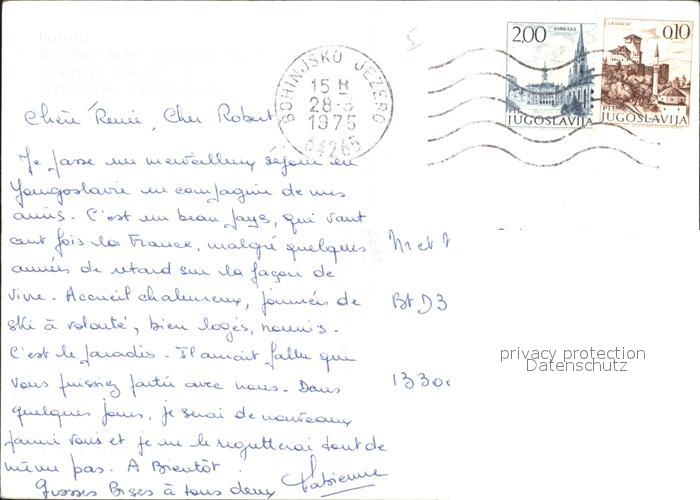 BOHINJ
2,00
NOVI SAD
JUGOSLAVIJA
GRADAČAC
0,10
PTT
JUGOSLAVIJA
BOHINJSKO JEZERO
15 H
28-3
1975
64265
Chère Renée, Cher Robert
Je passe un merveilleux séjour en
Yougoslavie en compagnie de mes
amis. C'est un beau pays, qui vaut
cent fois la France, malgré quelques
années de retard sur la façon de
vivre. Accueil chaleureux, journées de
ski à volonté, bien logés, nourris.
C'est le paradis. Il aurait fallu que
vous puissiez partir avec nous. Dans
quelques jours, je serai de nouveaux
parmi vous et je ne le regretterai tout de
même pas. A Bientôt.
Grosses Bises à tous deux Fabienne
Mr et
Bt D3
1330
privacy protection
Datenschutz